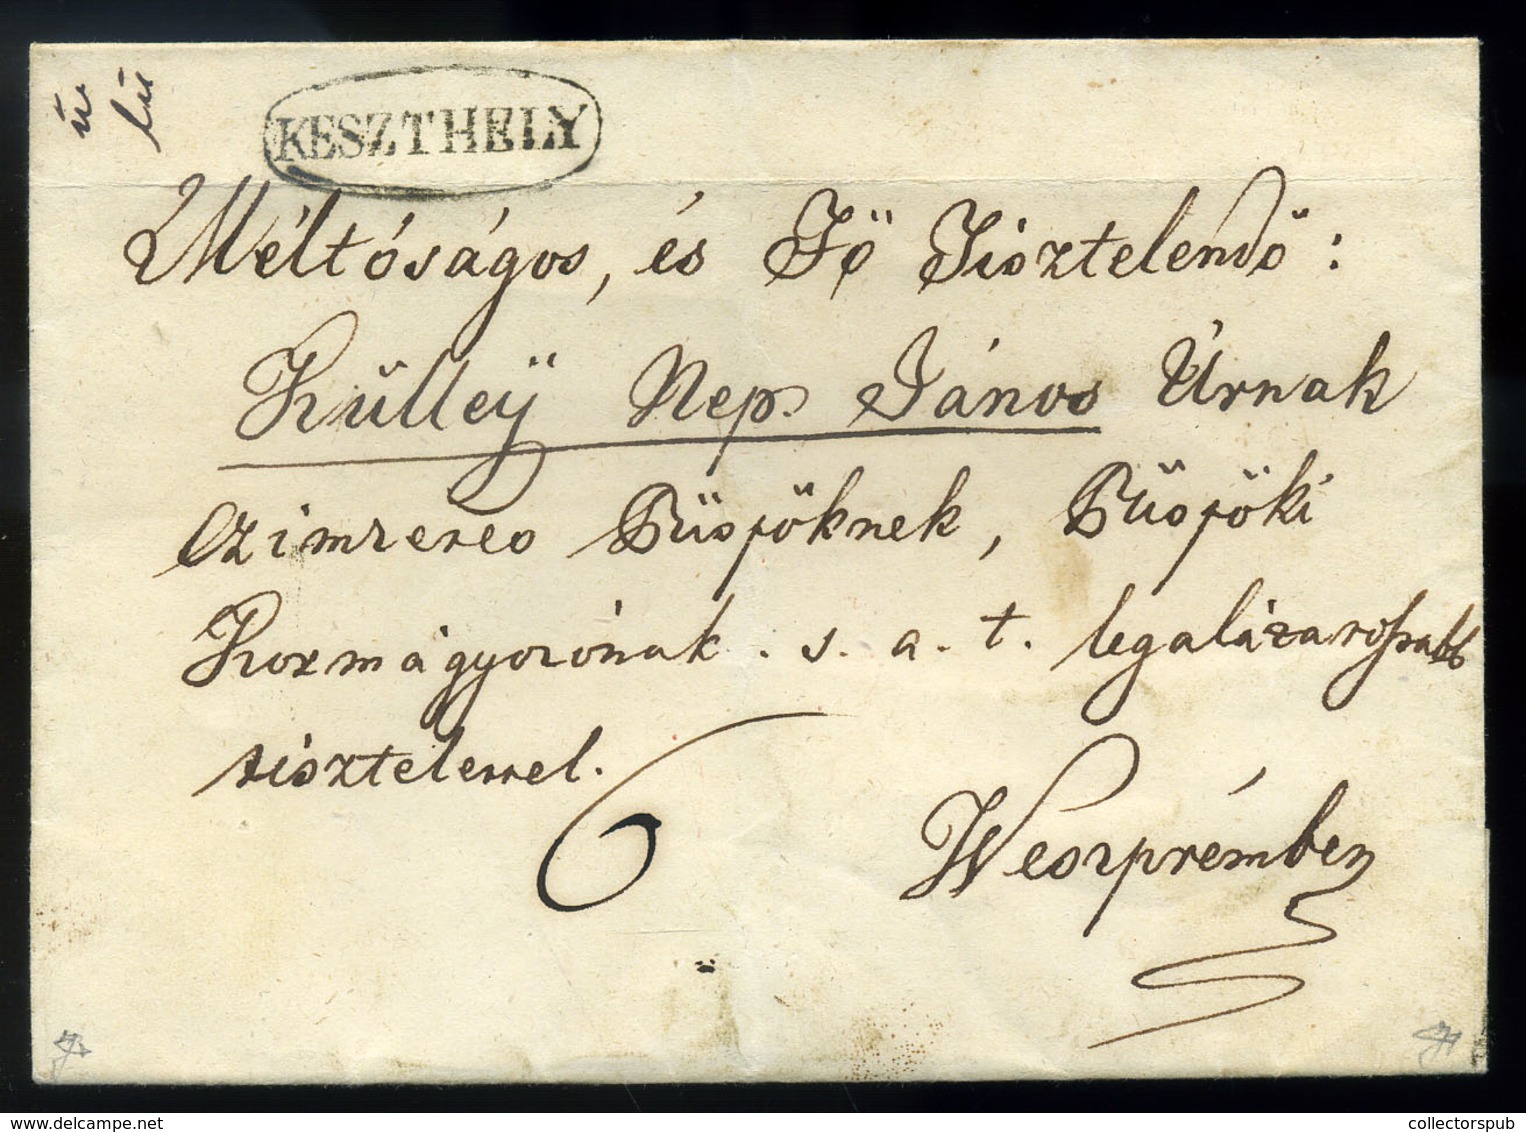 KESZTHELY
Méltóságos, és Fö Tisztelendő:
Küllëÿ Nep. János Úrnak
Czimzeres Püspöknek, Püspöki
Kormágyozónak . s. a. t. legalázatossabb
tisztelettel.
6
Weszprémben
collectorspub.com